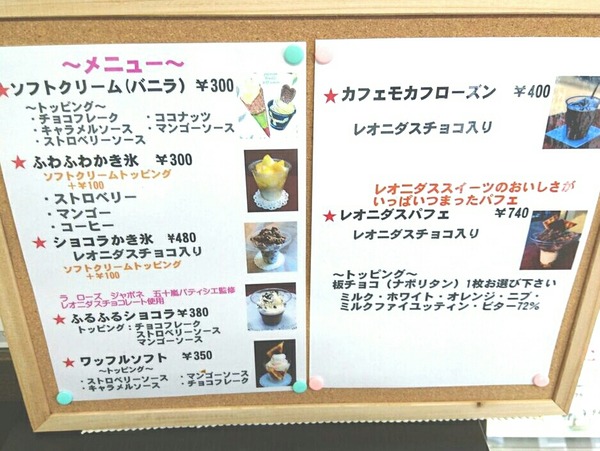 ～メニュー～
★ソフトクリーム(バニラ) ￥300
～トッピング～
・チョコフレーク ・ココナッツ
・キャラメルソース ・マンゴーソース
・ストロベリーソース
★ふわふわかき氷 ￥300
ソフトクリームトッピング
＋￥100
・ストロベリー
・マンゴー
・コーヒー
★ショコラかき氷 ￥480
レオニダスチョコ入り
ソフトクリームトッピング
＋￥100
ラ ローズ ジャポネ 五十嵐パティシエ監修
レオニダスチョコレート使用
★ふるふるショコラ￥380
トッピング：チョコフレーク
ストロベリーソース
マンゴーソース
★ワッフルソフト ￥350
～トッピング～
・ストロベリーソース ・マンゴーソース
・キャラメルソース ・チョコフレーク
★カフェモカフローズン ￥400
レオニダスチョコ入り
レオニダススイーツのおいしさが
いっぱいつまったパフェ
★レオニダスパフェ ￥740
レオニダスチョコ入り
～トッピング～
板チョコ（ナポリタン）1枚お選び下さい
ミルク・ホワイト・オレンジ・ニブ・
ミルクファイユッティン・ビター72%